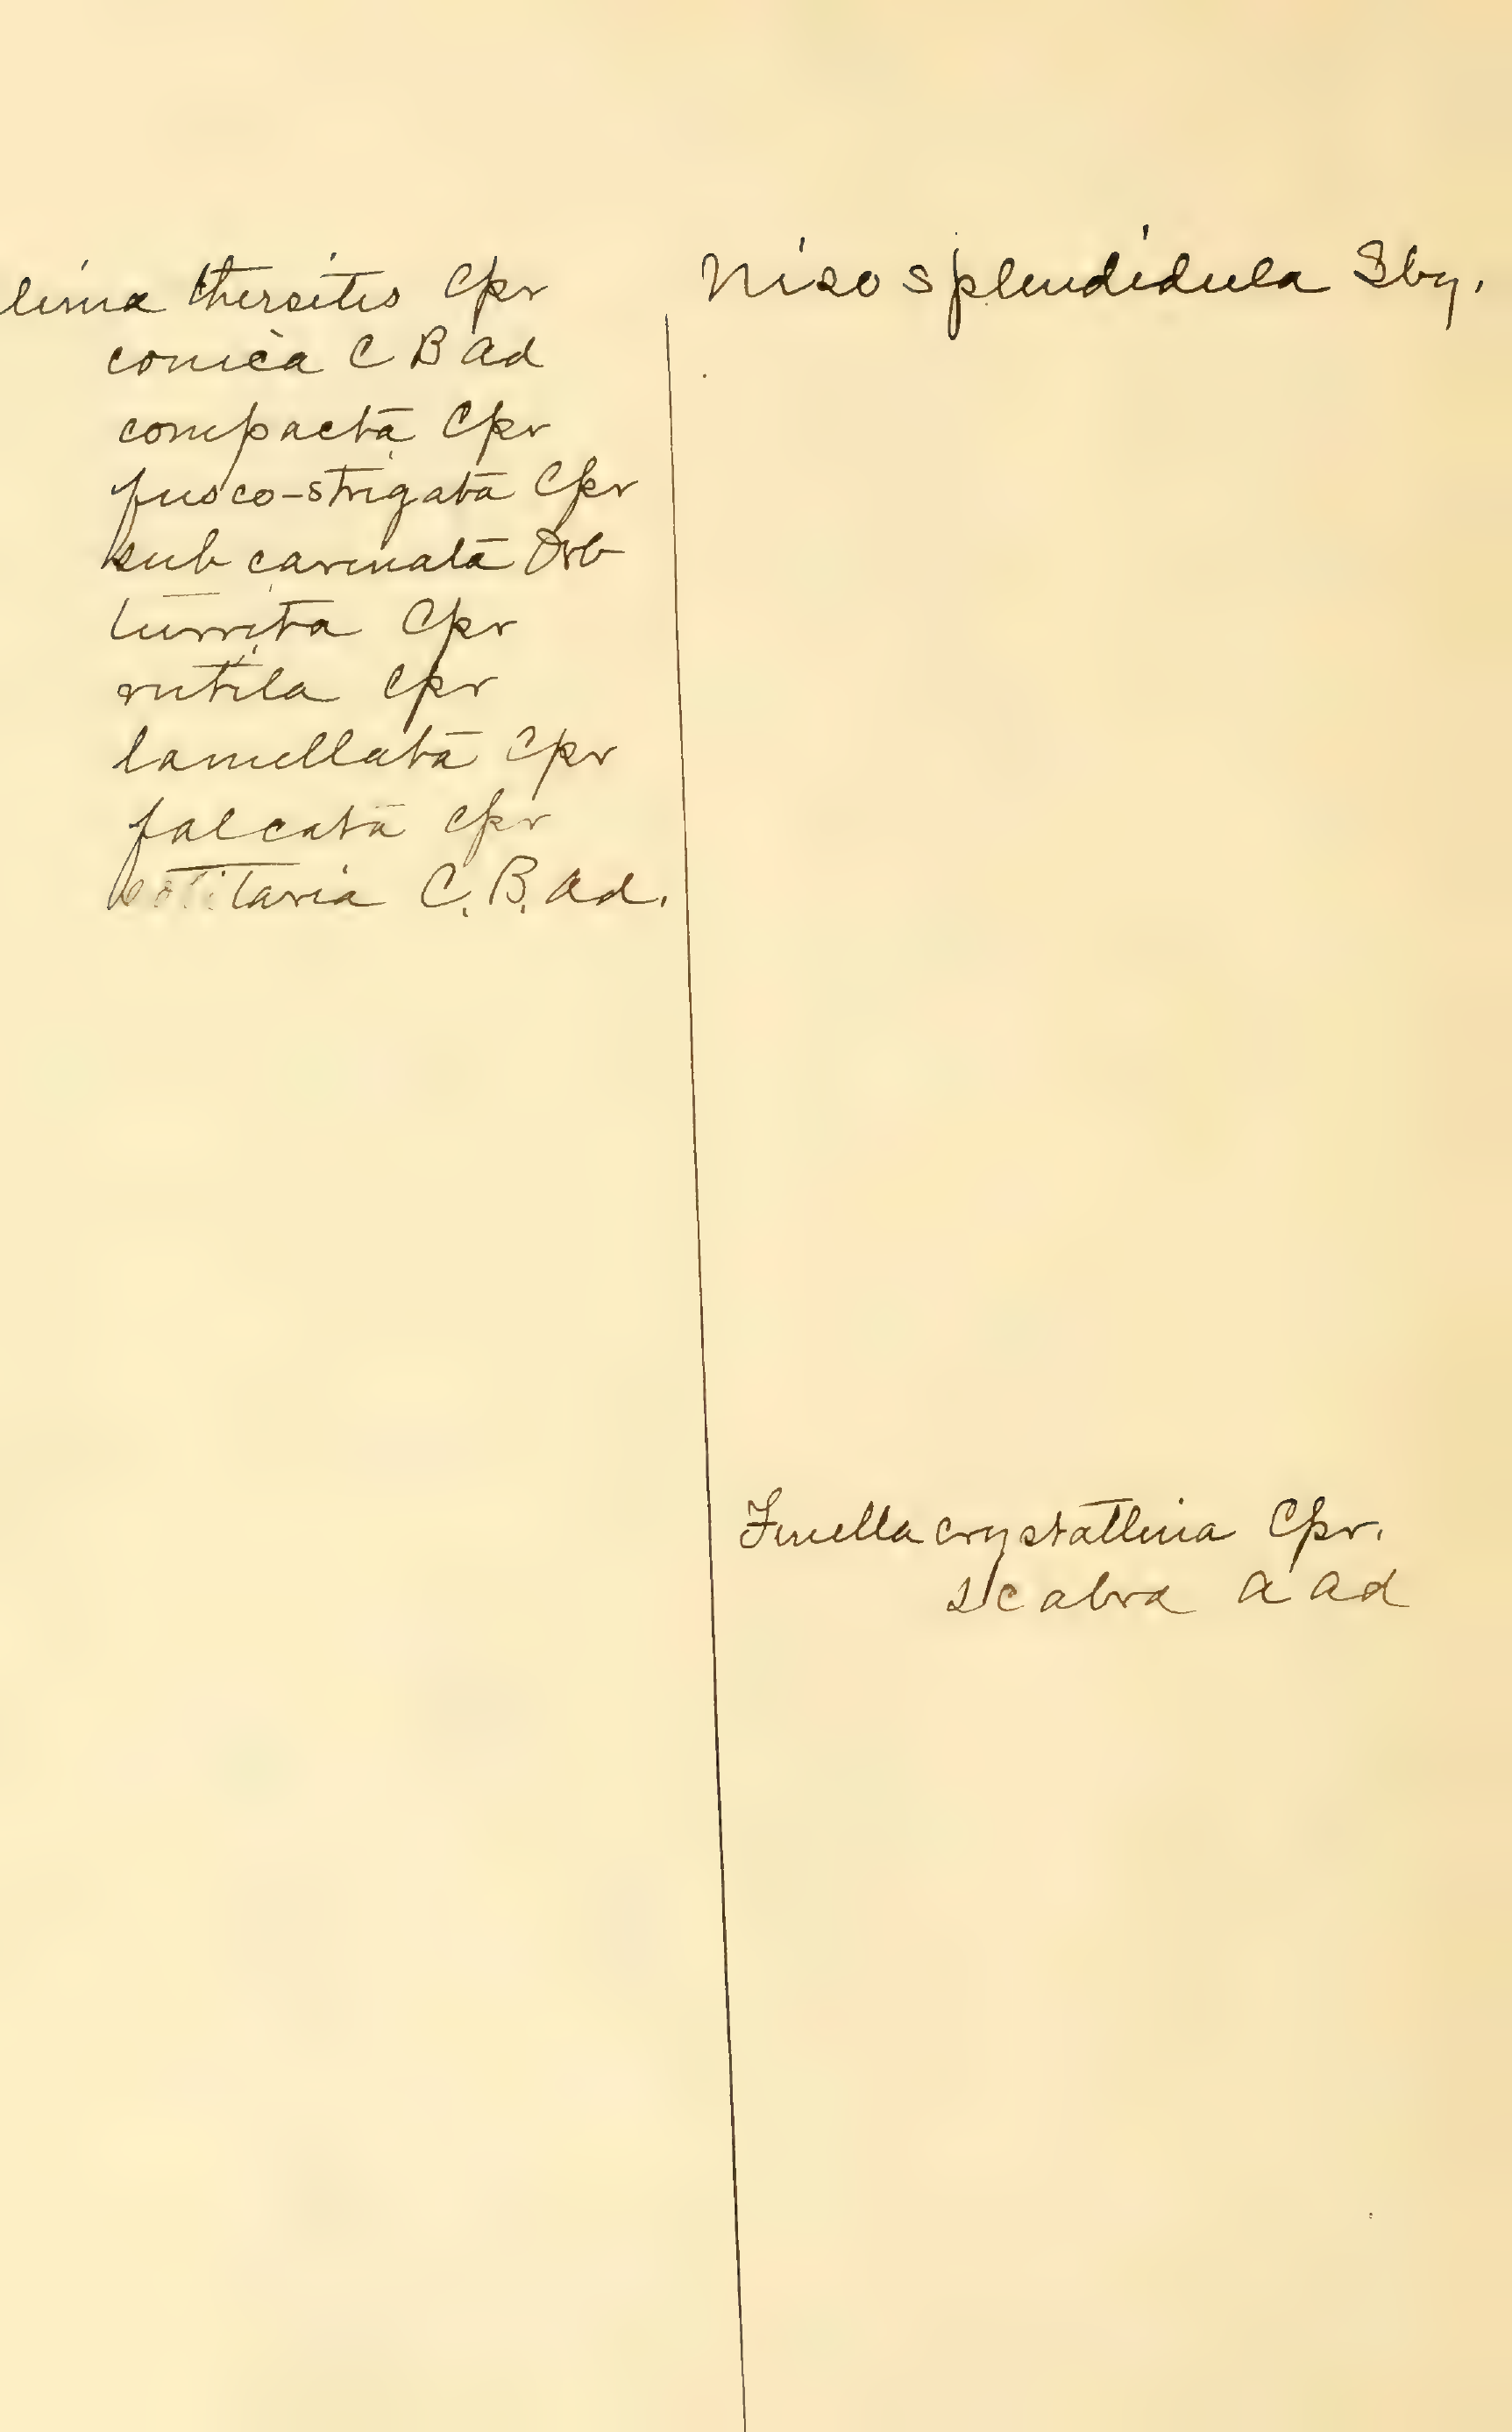 lima thersites Cpr
conica C B Ad
compacta Cpr
fusco-strigata Cpr
sub carinata Orb
turrita Cpr
rutila Cpr
lamellata Cpr
falcata Cpr
C. B. Ad.
Niso splendidula Sby.
Finella crystallina Cpr.
scabra A Ad